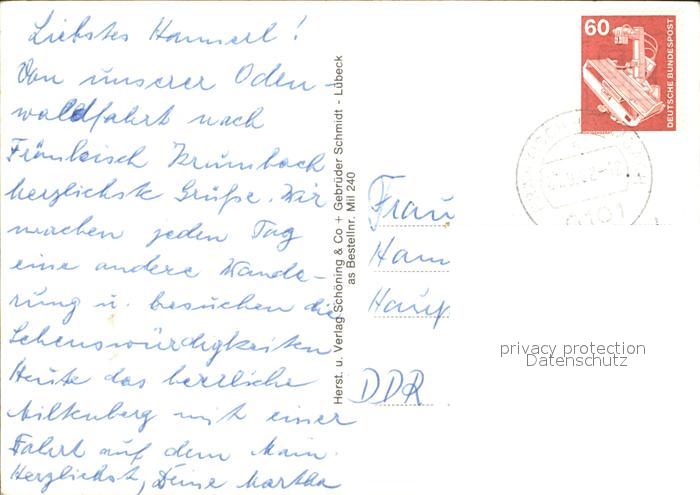 Liebstes Hannerl!
Von unserer Oden-
waldfahrt nach
Fränkisch Krumbach
herzlichste Grüße. Wir
machen jeden Tag
eine andere Wande-
rung u. besuchen die
Sehenswürdigkeiten.
Heute das herrliche
Miltenberg mit einer
Fahrt auf dem Main.
Herzlichst, Deine Martha
Herst. u. Verlag Schöning & Co + Gebrüder Schmidt - Lübeck
as Bestellnr. Mil 240
60
DEUTSCHE BUNDESPOST
6101
Frau
Hann
DDR
privacy protection
Datenschutz